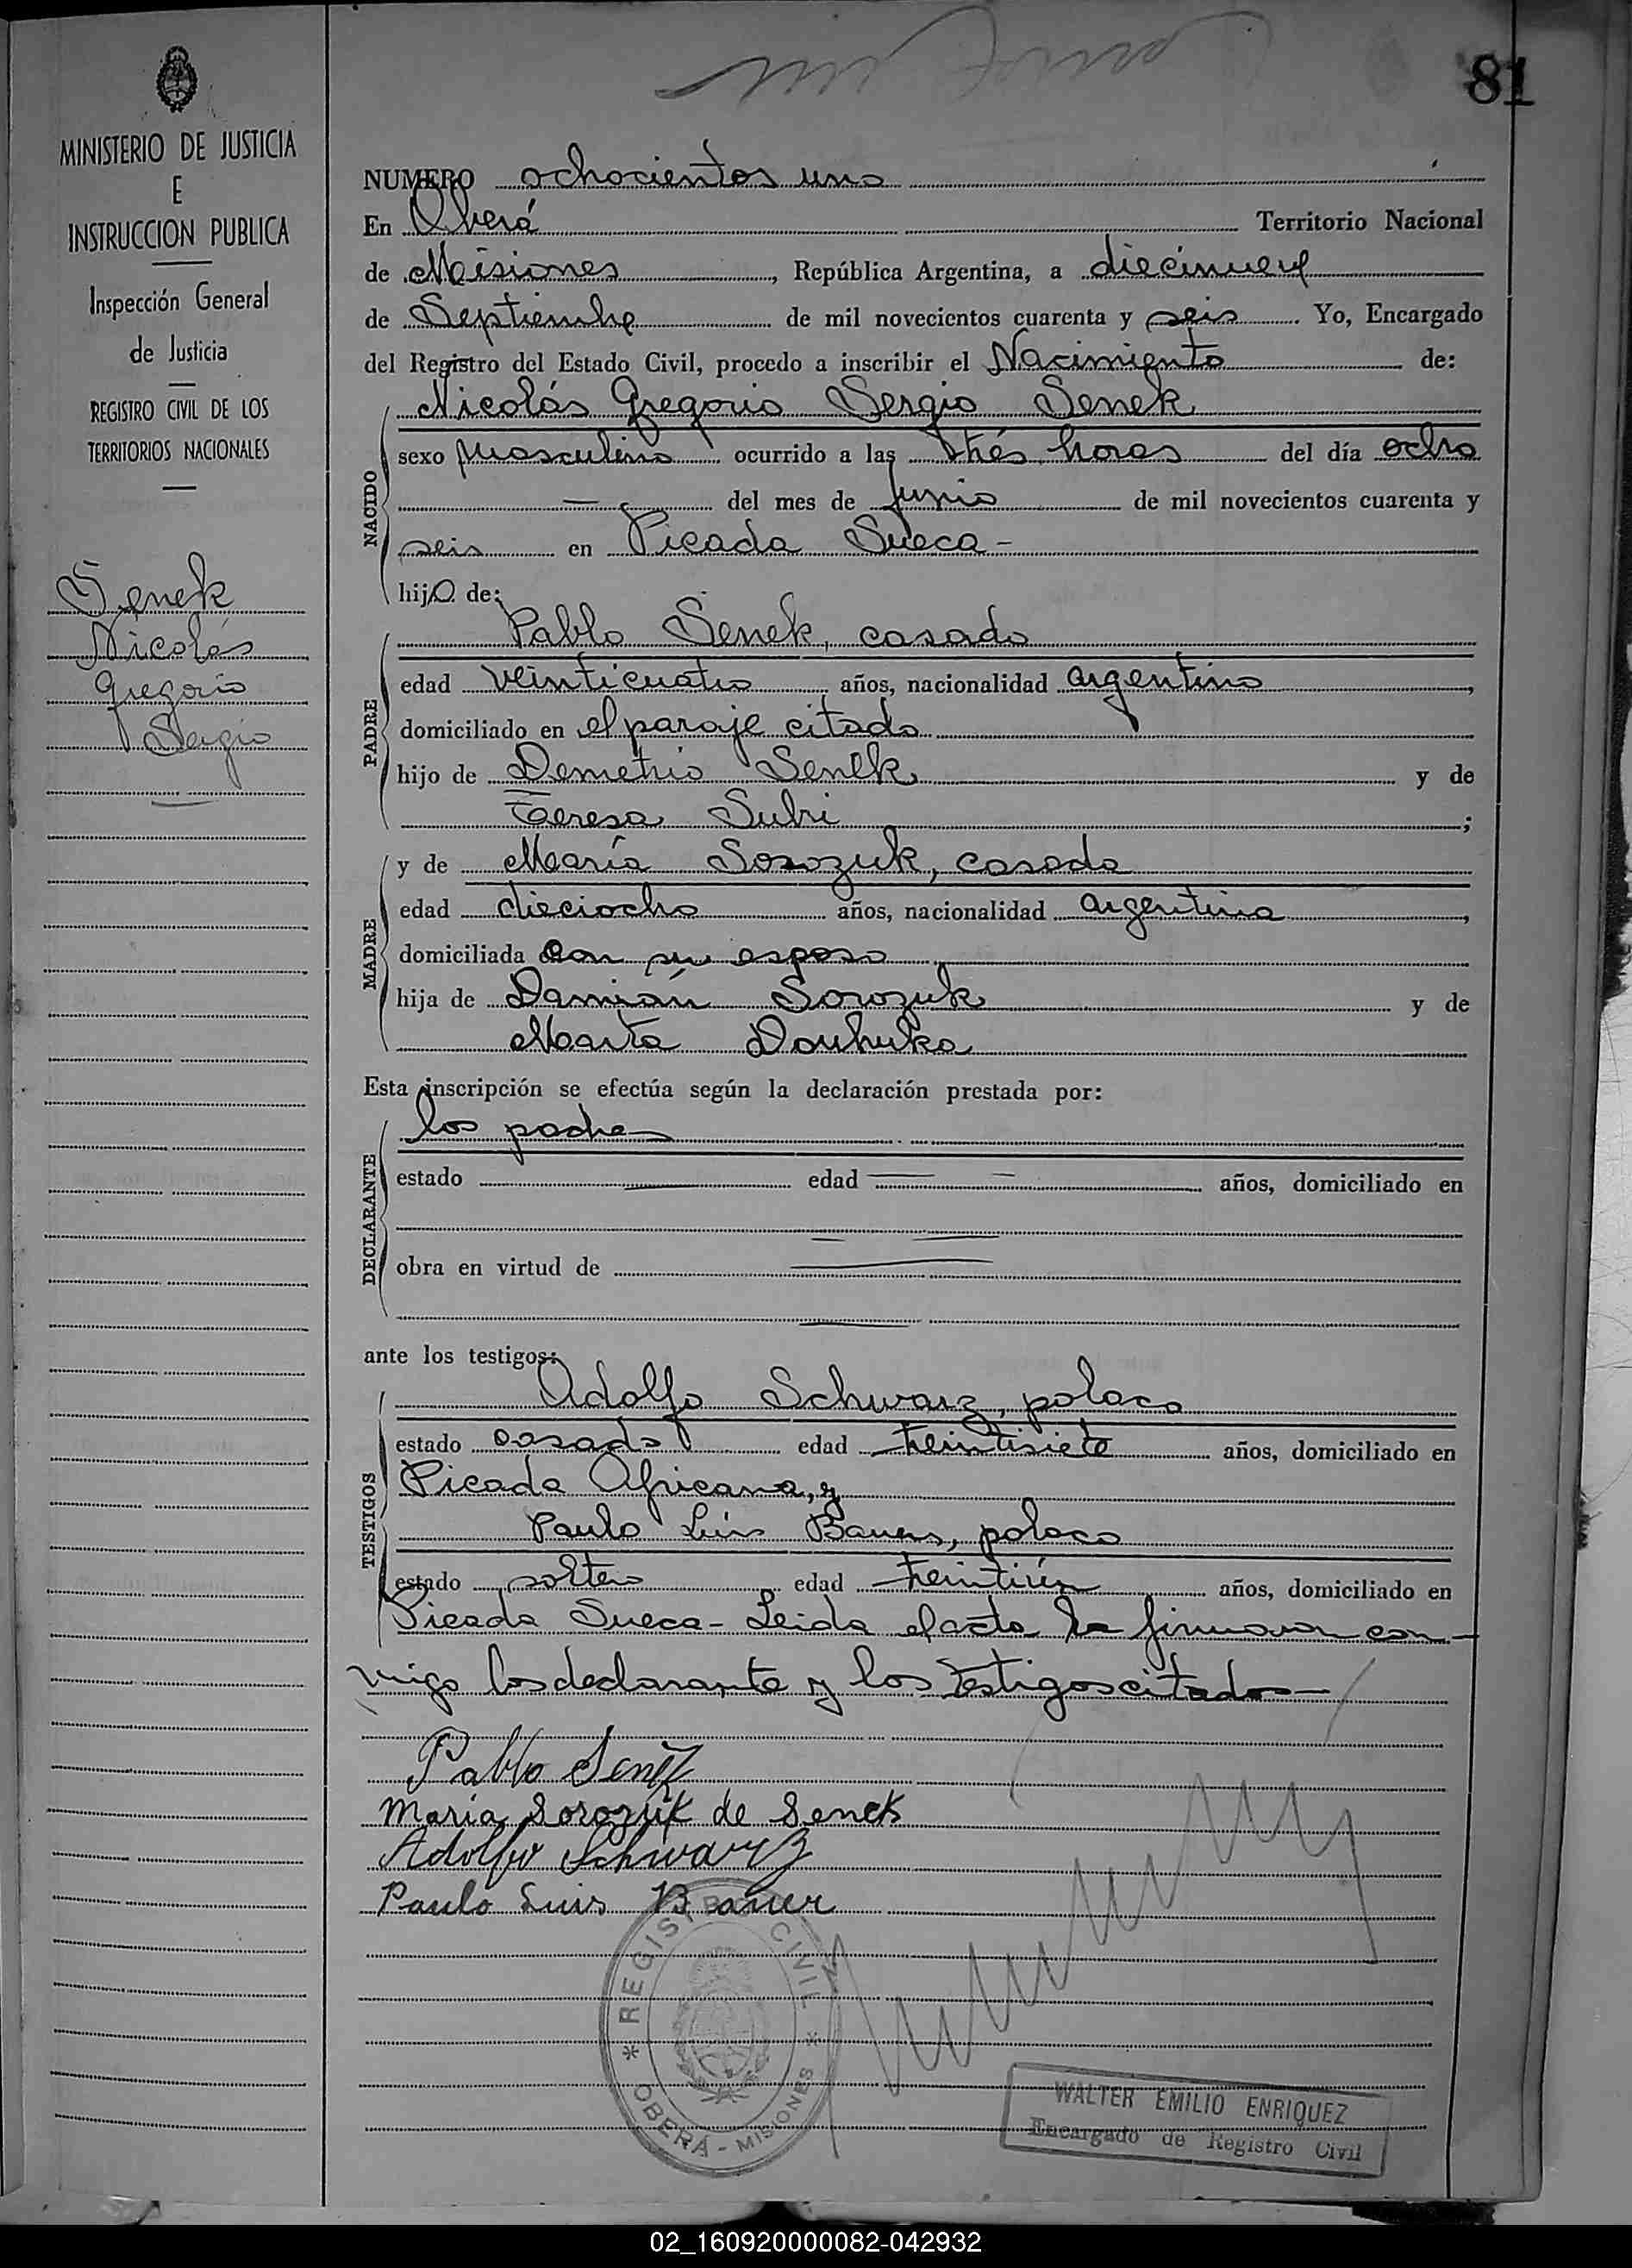 81
MINISTERIO DE JUSTICIA
E
INSTRUCCION PUBLICA
Inspección General
de Justicia
REGISTRO CIVIL DE LOS
TERRITORIOS NACIONALES
Senek
Nicolás
Gregorio
Sergio
NUMERO ochocientos uno
En Oberá Territorio Nacional
de Misiones, República Argentina, a diecinueve
de Septiembre de mil novecientos cuarenta y seis. Yo, Encargado
del Registro del Estado Civil, procedo a inscribir el Nacimiento de:
NACIDO
Nicolás Gregorio Sergio Senek
sexo masculino ocurrido a las trés horas del día ocho
— del mes de Junio de mil novecientos cuarenta y
seis en Picada Sueca -
hijo de:
PADRE
Pablo Senek, casado
edad veinticuatro años, nacionalidad argentino,
domiciliado en el paraje citado
hijo de Demetrio Senek y de
Teresa Subi;
MADRE
y de María Sorozuk, casada
edad dieciocho años, nacionalidad argentina,
domiciliada con su esposo
hija de Damián Sorozuk y de
Marta
Esta inscripción se efectúa según la declaración prestada por:
DECLARANTE
los padres
estado — edad — años, domiciliado en
obra en virtud de —
ante los testigos:
TESTIGOS
Adolfo Schwarz, polaco
estado casado edad treintisiete años, domiciliado en
Picada Africana, y
Paulo Luis Bauer, polaco
estado soltero edad treintiún años, domiciliado en
Picada Sueca - Leida el acta la firmaron con-
migo los declarante y los testigos citados —
Pablo Senek
Maria Sorozuk de Senek
Adolfo Schwarz
Paulo Luis Bauer
* REGISTRO CIVIL *
OBERÁ - MISIONES
WALTER EMILIO ENRIQUEZ
Encargado de Registro Civil
02_160920000082-042932